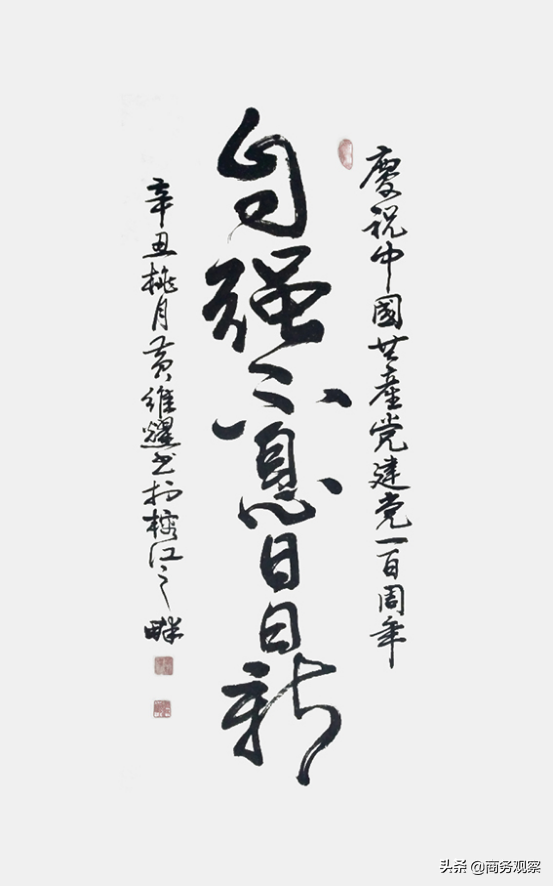 慶祝中國共產党建党一百周年
自强不息日日新
辛丑桃月黄維耀书於榕江之畔
头条 @商务观察